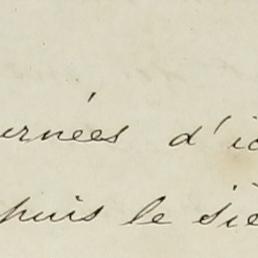 urnées d'ic
puis le siè